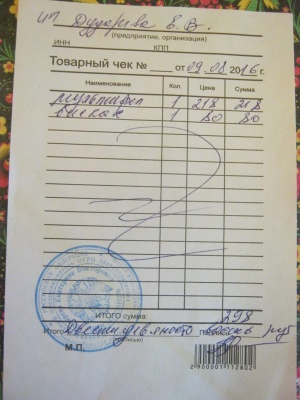 ИП Дударева Е.В.
(предприятие, организация)
ИНН
КПП
Товарный чек № ____ от 09.08 2016 г.
Наименование Кол. Цена Сумма
мультифил 1 218 218
1 80 80
ИТОГО сумма: 298
Итого Двести девяносто восемь руб
(прописью)
М.П.
2900001112802